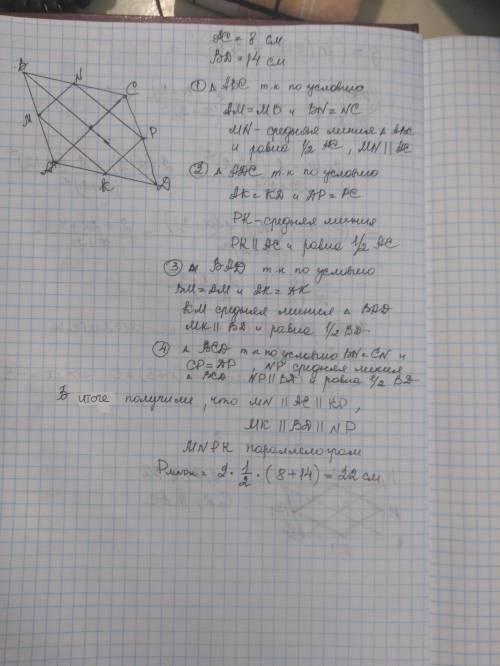 AC = 8 см
BD = 14 см
B
N
C
M
P
A
K
D
① △ ABC т.к по условию
AM = MB и BN = NC
MN - средняя линия △ ABC
и равна 1/2 AC, MN || AC
② △ ADC т.к по условию
AK = KD и DP = PC
PK - средняя линия
PK || AC и равна 1/2 AC
③ △ BAD т.к по условию
BM = AM и AK = DK
KM средняя линия △ BAD
MK || BD и равна 1/2 BD
④ △ BCD т.к по условию BN = CN и
CP = DP, NP средняя линия
△ BCD NP || BD и равна 1/2 BD
В итоге получили, что MN || AC || KP,
MK || BD || NP
MNPK параллелограм
Pмnpk = 2 · 1/2 · (8 + 14) = 22 см